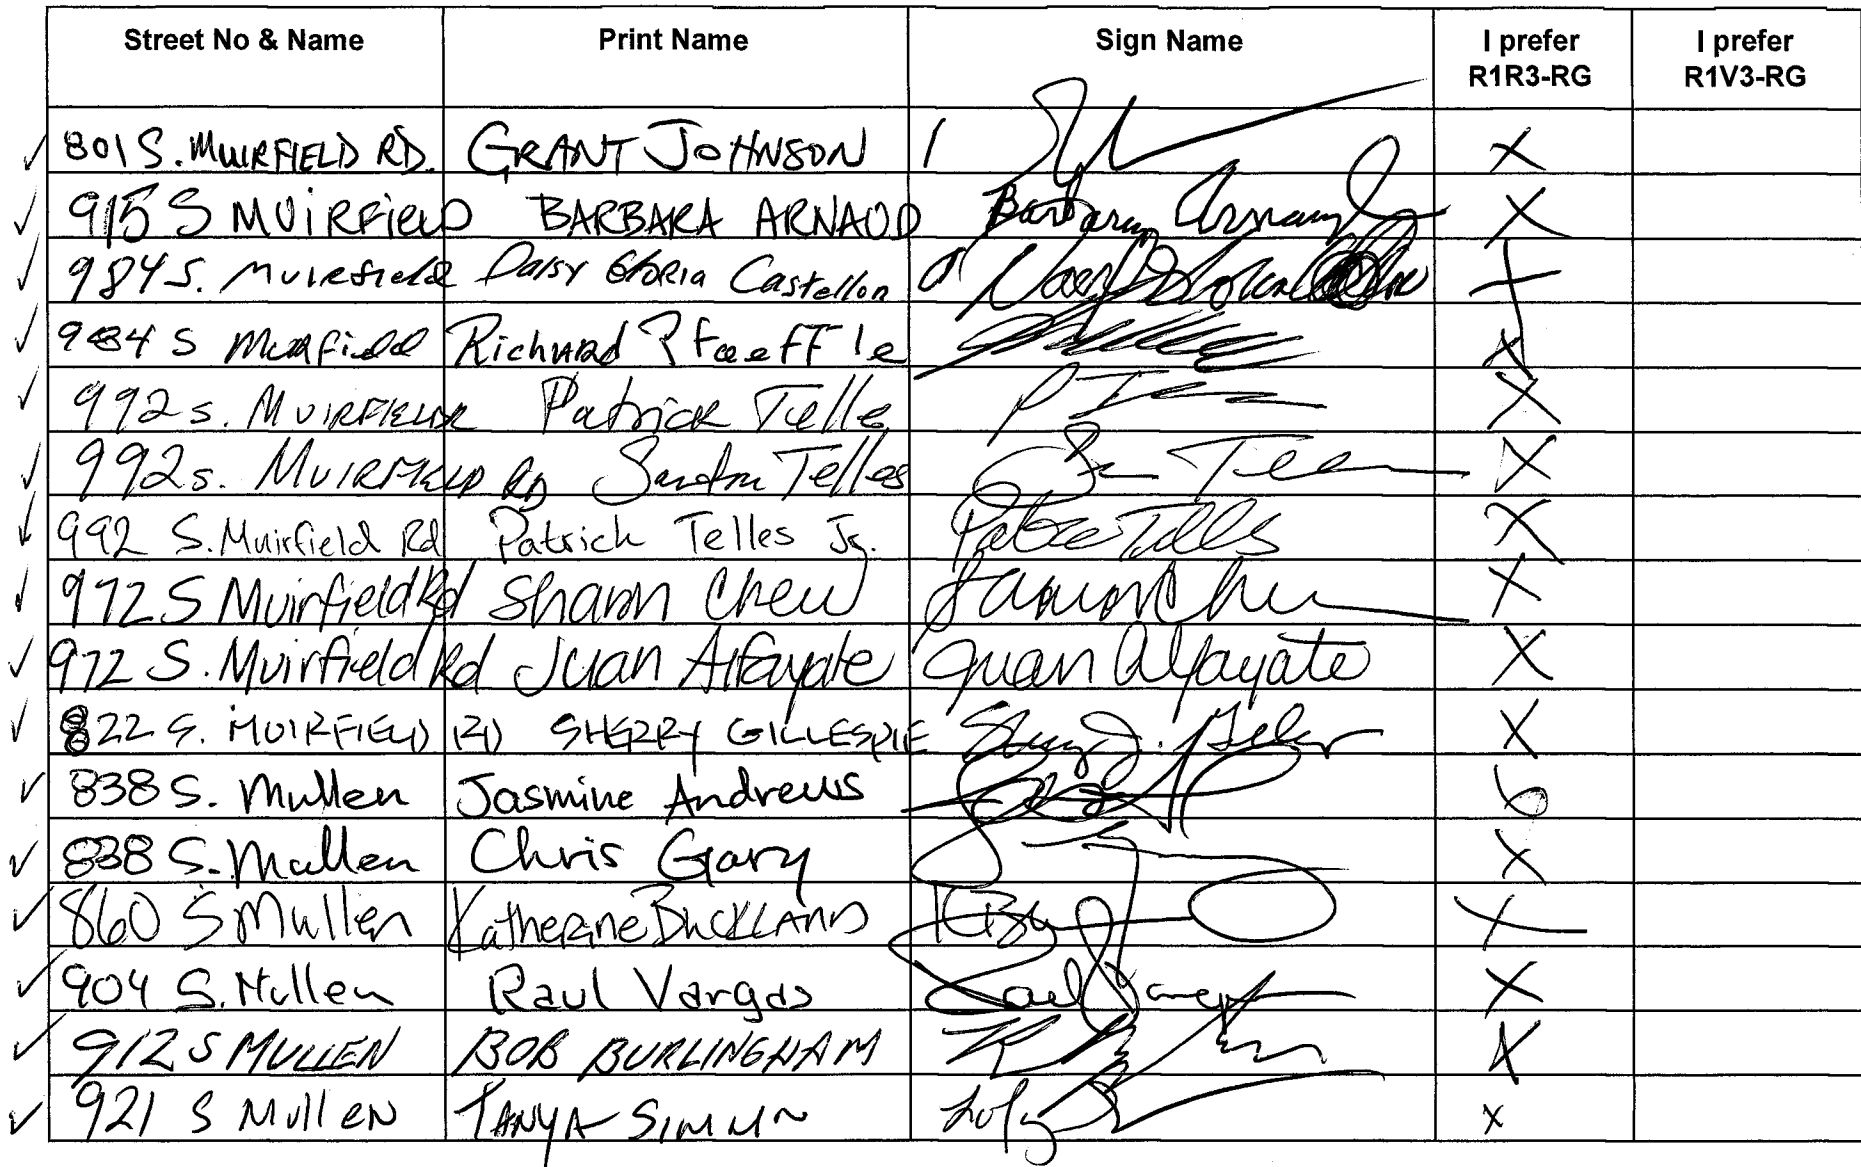 Street No & Name Print Name Sign Name I prefer R1R3-RG I prefer R1V3-RG
✓ 801 S. MUIRFIELD RD. GRANT JOHNSON X
✓ 915 S MUIRFIELD BARBARA ARNAUD Barbara Arnaud X
✓ 984 S. Muirfield Daisy Gloria Castellon X
✓ 984 S Muirfield Richard Pfaeffle X
✓ 992 S. MUIRFIELD Patrick Telles X
✓ 992 S. MUIRFIELD RD Sandra Telles X
✓ 992 S. Muirfield Rd Patrick Telles Jr. X
✓ 972 S Muirfield Rd Sharon Chew X
✓ 972 S. Muirfield Rd Juan Alfayate Juan Alfayate X
✓ 822 S. MUIRFIELD RD SHERRY GILLESPIE X
✓ 838 S. Mullen Jasmine Andrews
✓ 838 S. Mullen Chris Gary X
✓ 860 S Mullen Katherine BUCKLAND X
✓ 904 S. Mullen Raul Vargas X
✓ 912 S MULLEN BOB BURLINGHAM X
✓ 921 S MullEN TANYA X